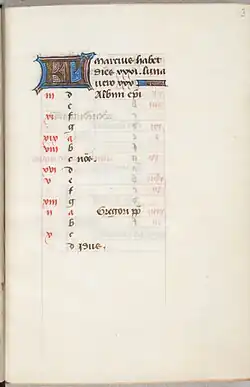 KL marcius habet
dies xxxi. luna
vero xxx
iii d Albini epi
e
xi f
g
xix a
viii b
c nōs.
xvi d
v e
f
xiii g
ii a Gregorii pp
b
x c
d Idus.
3